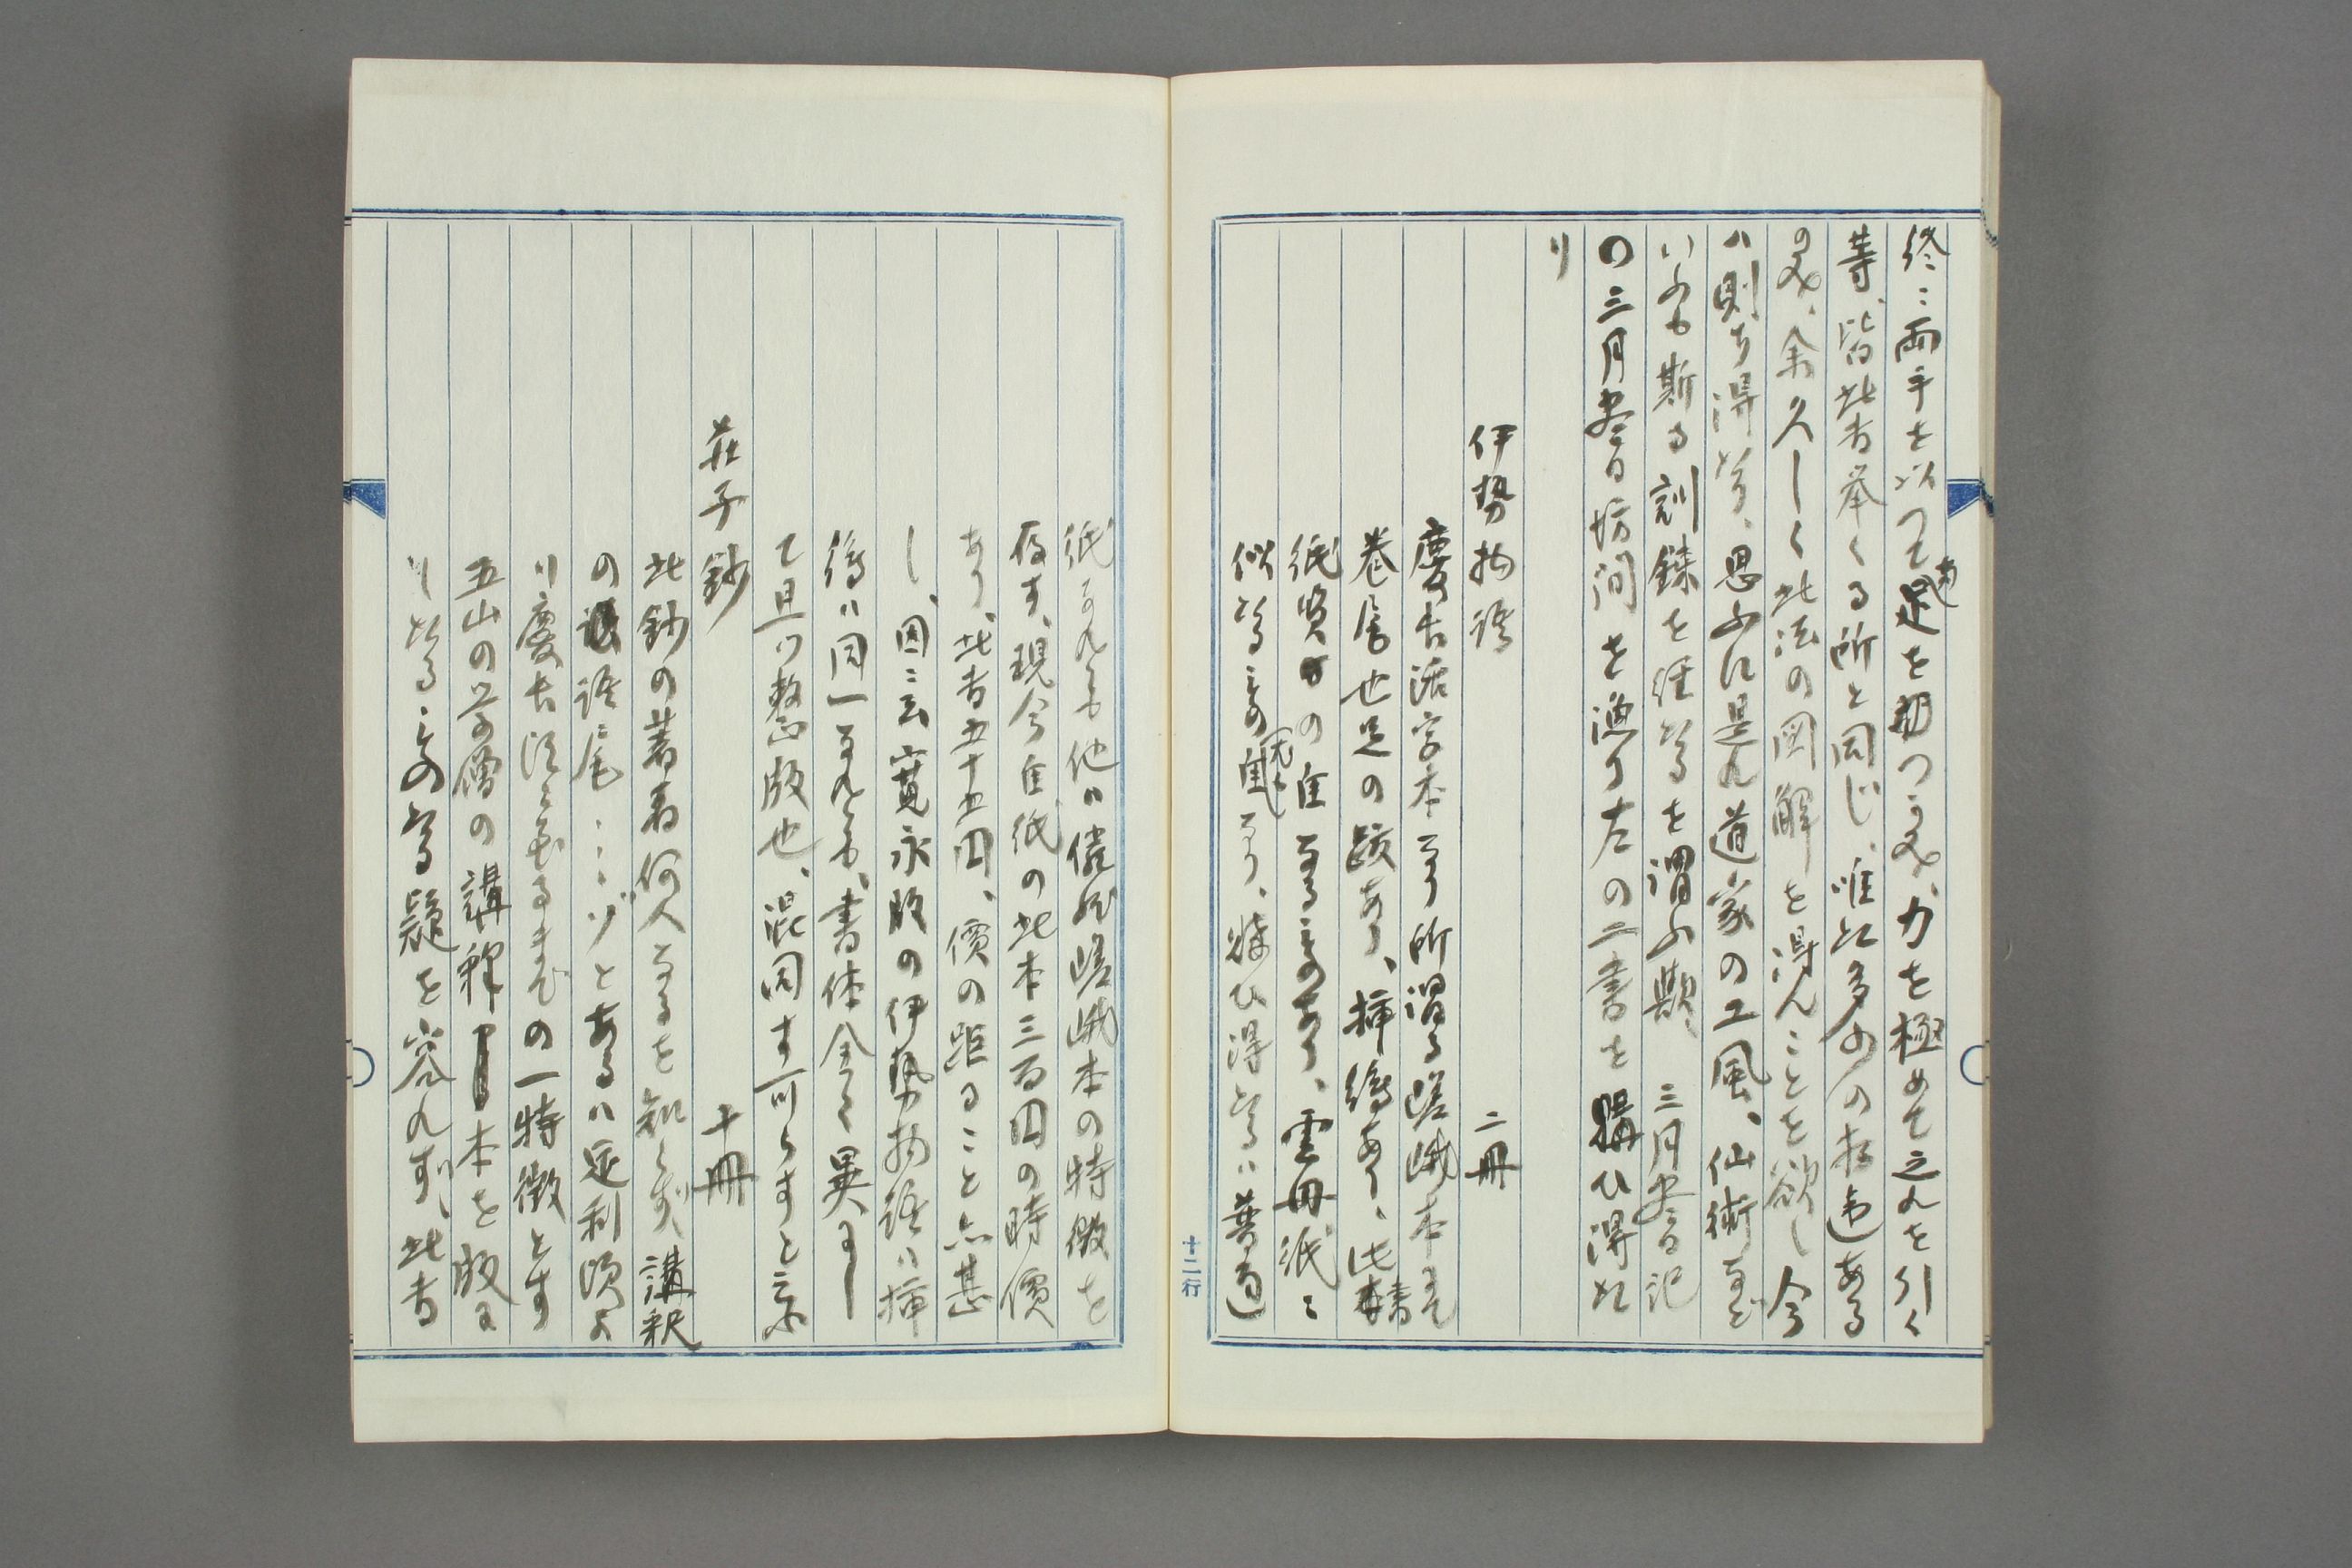 終ニ両手を以つて両足を握つゝ力を極めて之れを引く
等、皆此書挙くる所と同じ、唯た多少の相違ある
のみ、余久しく此法の図解を得んことを欲し今
ハ則ち得たり、思ふに是れ道家の工風、仙術など
いふも斯る訓錬を経たるを謂ふ歟、三月尽日記
〇三月尽日坊间を漁り左の二書を購ひ得た
り
伊勢物語 二冊
慶長活字本なり所謂る嵯峨本にて
巻尾也足の跋あり、挿絵あり、此書
紙質の佳なるものあり、雲母紙に
似たるもの尤も佳なり、購ひ得たるハ普通
紙なれとも他ハ儘然嵯峨本の特徴を
存す、現今佳紙の此本三百円の時價
あり、此書五十五円、價の距ること亦甚
し、因ニ云寛永版の伊勢物語ハ挿
絵ハ同一なれとも、書体全く異にし
て且つ整版也、混同す可らすと云ふ
荘子鈔 十冊
此鈔の著者何人なるを知らず、講釈
の語尾ニ……ゾとあるハ足利頃よ
り慶長頃に至るまでの一特徴とす
五山の学僧の講釋本を版に
したるものたる疑を容れず、此書
十二行